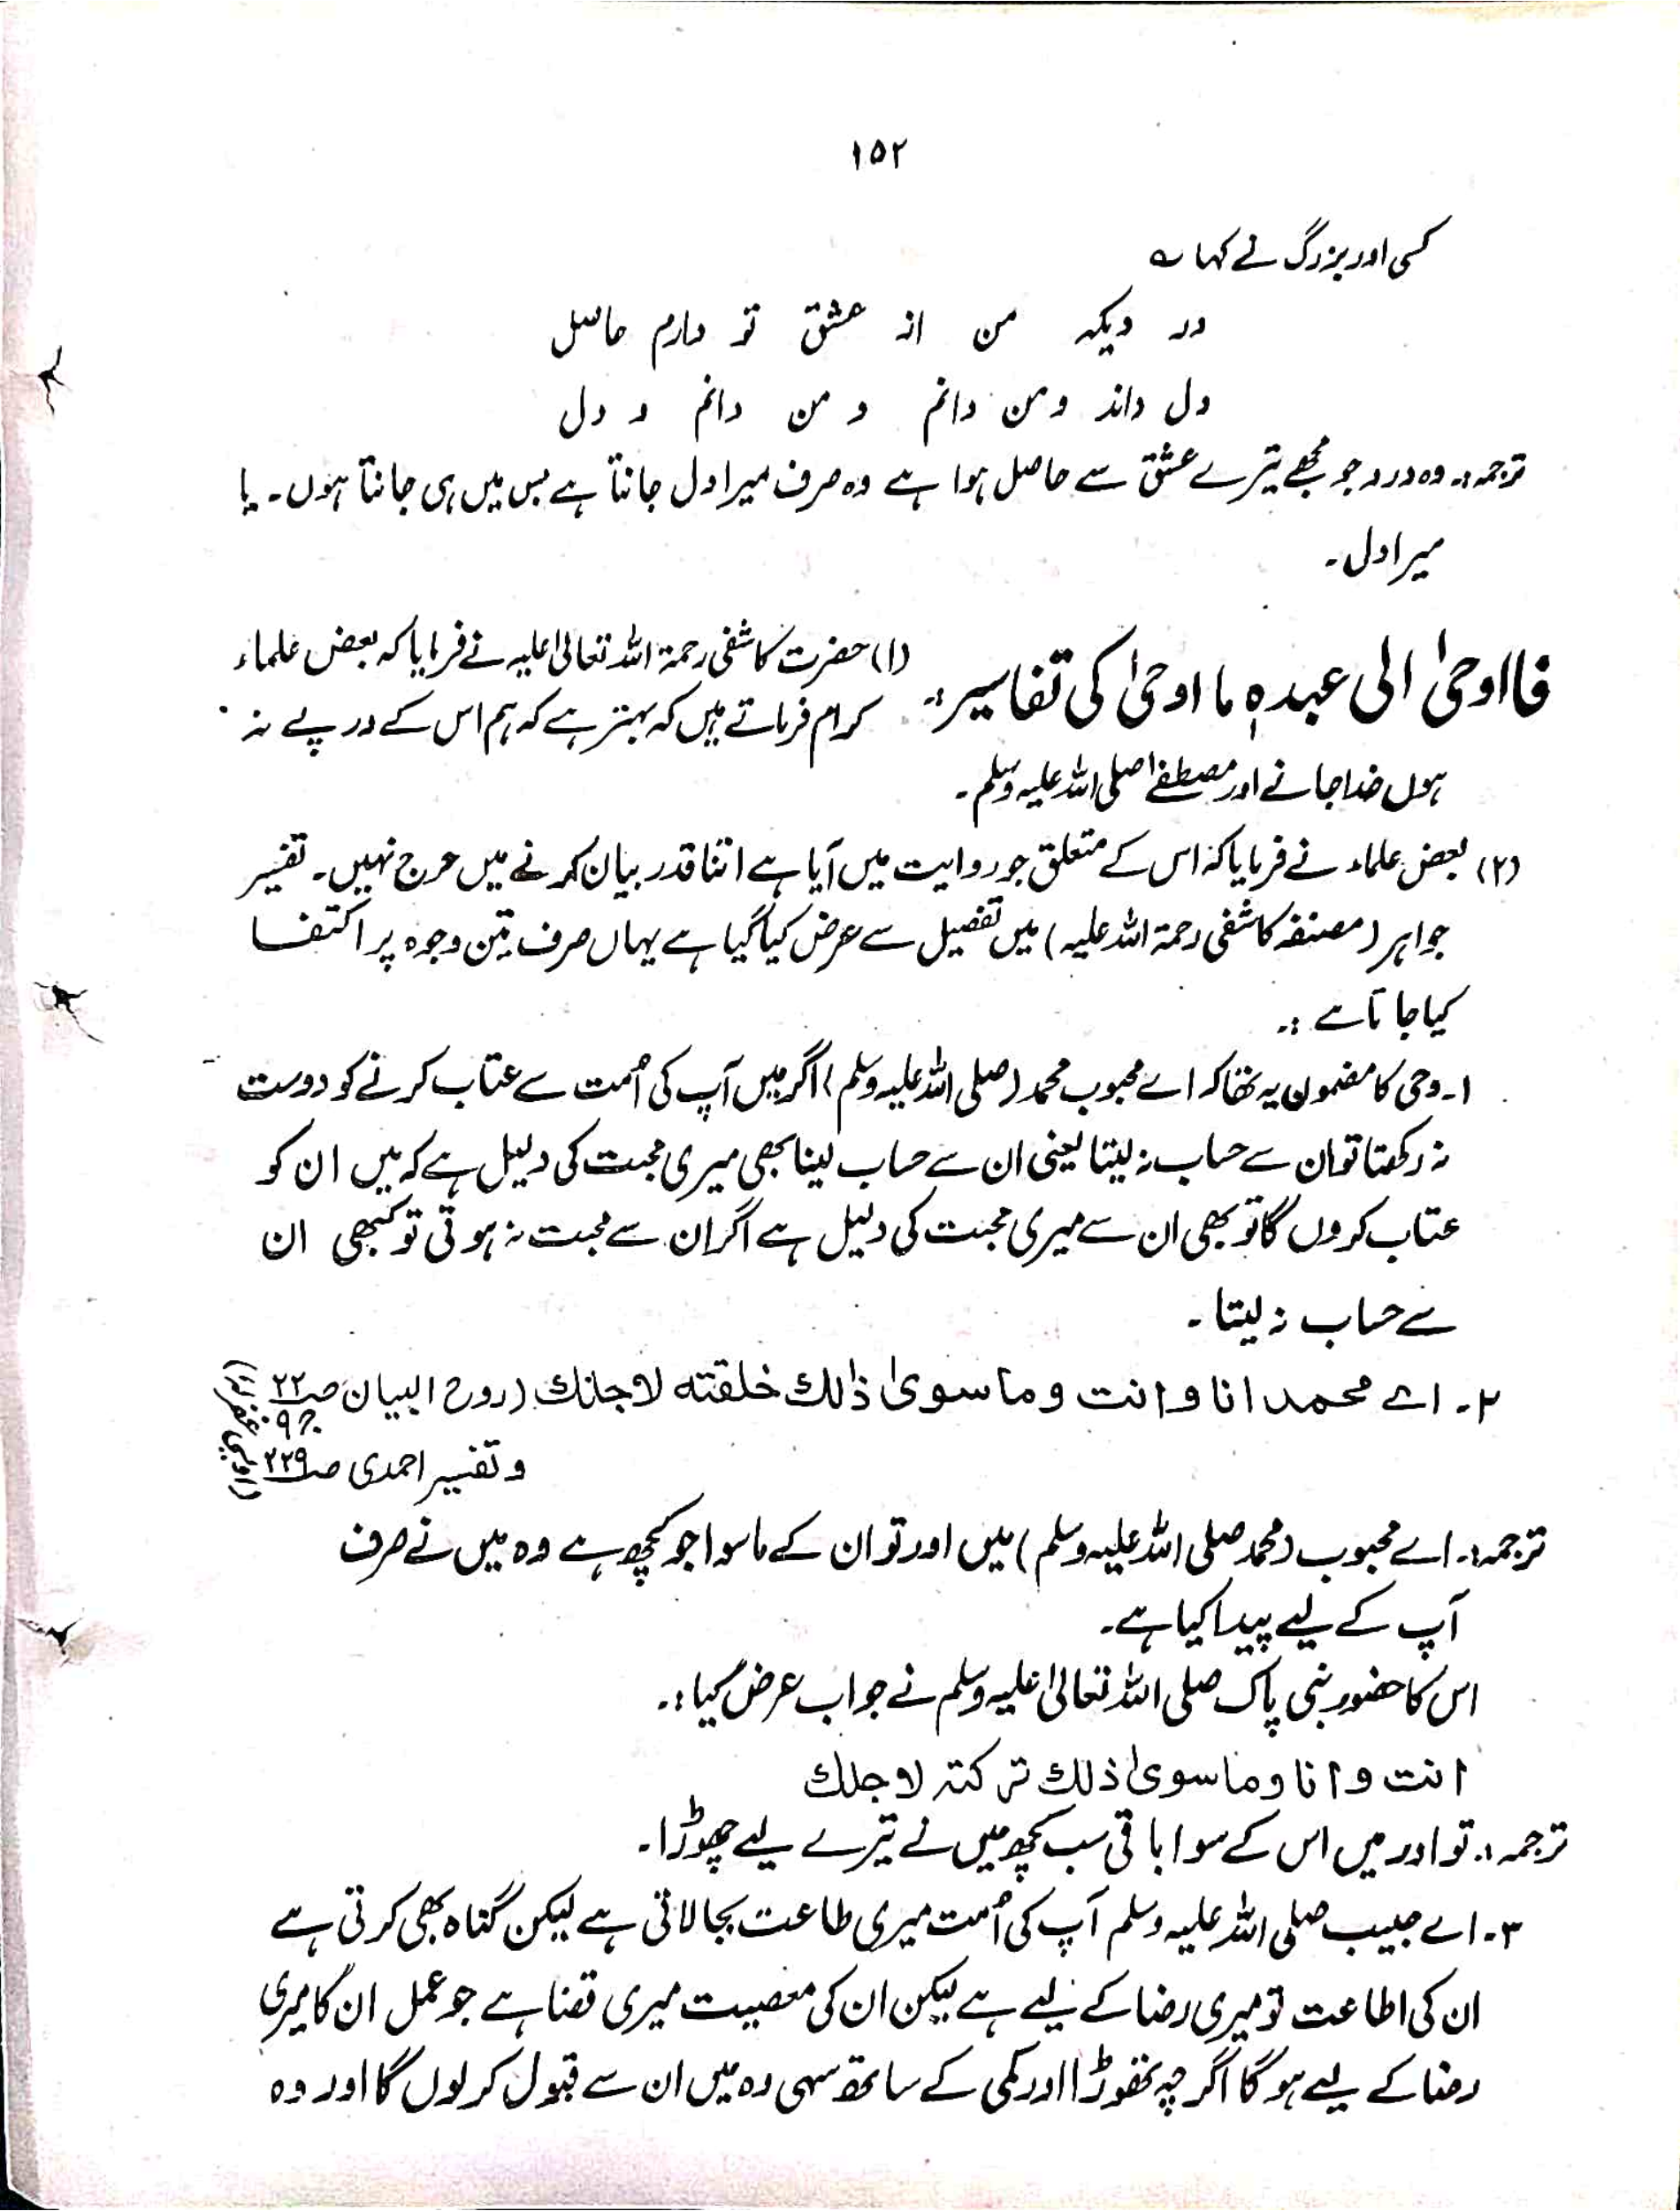 ۱۵۲
کسی اور بزرگ نے کہا ؎
درد دیکہ من از عشق تو دارم حاصل
دل داند و من دانم و من دانم و دل
ترجمہ:۔ وہ درد جو مجھے تیرے عشق سے حاصل ہوا ہے وہ صرف میرا دل جانتا ہے بس میں ہی جانتا ہوں۔ یا
میرا دل۔
فااوحیٰ الی عبدہٖ ما اوحیٰ کی تفاسیر:۔
(۱) حضرت کاشفی رحمۃ اللہ تعالیٰ علیہ نے فرمایا کہ بعض علماء
کرام فرماتے ہیں کہ بہتر ہے کہ ہم اس کے درپے نہ
ہوں خدا جانے اور مصطفےٰ صلی اللہ علیہ وسلم۔
(۲) بعض علماء نے فرمایا کہ اس کے متعلق جو روایت میں آیا ہے اتنا قدر بیان کرنے میں حرج نہیں۔ تفسیر
جواہر (مصنفہ کاشفی رحمۃ اللہ علیہ) میں تفصیل سے عرض کیا گیا ہے یہاں صرف تین وجوہ پر اکتفا
کیا جاتا ہے:۔
۱۔ وحی کا مضمون یہ تھا کہ اے محبوب محمد (صلی اللہ علیہ وسلم) اگر میں آپ کی اُمت سے عتاب کرنے کو دوست
نہ رکھتا تو ان سے حساب نہ لیتا یعنی ان سے حساب لینا بھی میری محبت کی دلیل ہے کہ میں ان کو
عتاب کروں گا تو بھی ان سے میری محبت کی دلیل ہے اگر ان سے محبت نہ ہوتی تو کبھی ان
سے حساب نہ لیتا۔
۲۔ اے محمد انا و انت وما سویٰ ذٰلک خلقتہ لاجلک (روح البیان صـ۲۲
ج۹
و تفسیر احمدی صـ۲۲۹
ترجمہ:۔ اے محبوب (محمد صلی اللہ علیہ وسلم) میں اور تو ان کے ماسوا جو کچھ ہے وہ میں نے صرف
آپ کے لیے پیدا کیا ہے۔
اس کا حضور نبی پاک صلی اللہ تعالیٰ علیہ وسلم نے جواب عرض کیا:۔
انت و انا وما سویٰ ذلک ترکتہ لاجلک
ترجمہ:۔ تو اور میں اس کے سوا باقی سب کچھ میں نے تیرے لیے چھوڑا۔
۳۔ اے حبیب صلی اللہ علیہ وسلم آپ کی اُمت میری طاعت بجا لاتی ہے لیکن گناہ بھی کرتی ہے
ان کی اطاعت تو میری رضا کے لیے ہے لیکن ان کی معصیت میری قضا ہے جو عمل ان کا میری
رضا کے لیے ہو گا اگرچہ تھوڑا اور کمی کے ساتھ سہی وہ میں ان سے قبول کر لوں گا اور وہ